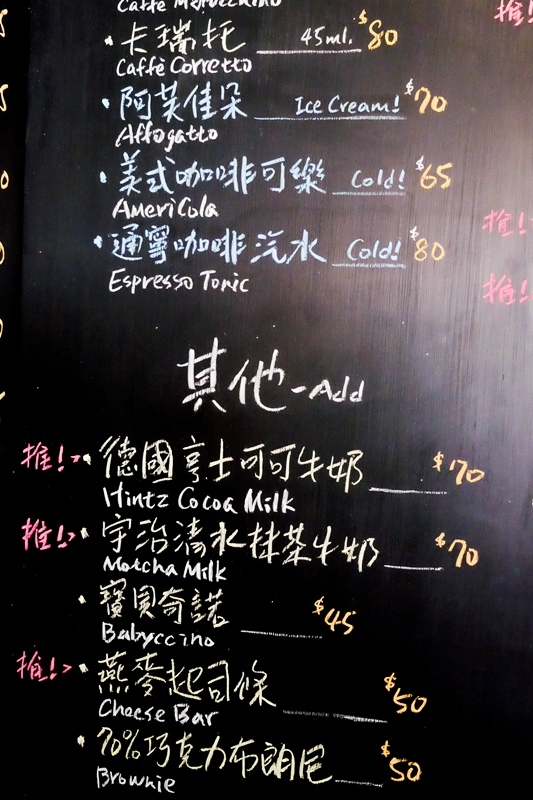 Caffè Marocchino
・卡瑞托 45ml. $80
Caffè Corretto
・阿芙佳朵 Ice Cream! $70
Affogatto
・美式咖啡可樂 Cold! $65
AmeriCola
・通寧咖啡汽水 Cold! $80
Espresso Tonic
其他-Add
推!> ・德國亨士可可牛奶 $70
Hintz Cocoa Milk
推!> ・宇治清水抹茶牛奶 $70
Matcha Milk
・寶貝奇諾 $45
Babyccino
推!> ・燕麥起司條 $50
Cheese Bar
・70%巧克力布朗尼 $50
Brownie
推!
推!
推!